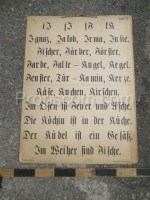 i I j J f F k K
Ignaz, Jakob, Irma, Julie.
Fischer, Färber, Förster.
Farbe, Falte – Kugel, Kegel.
Fenster, Tür – Kamin, Kerze.
Käse, Kuchen, Kirschen.
Im Ofen ist Feuer und Asche.
Die Köchin ist in der Küche.
Der Kübel ist ein Gefäß.
Im Weiher sind Fische.